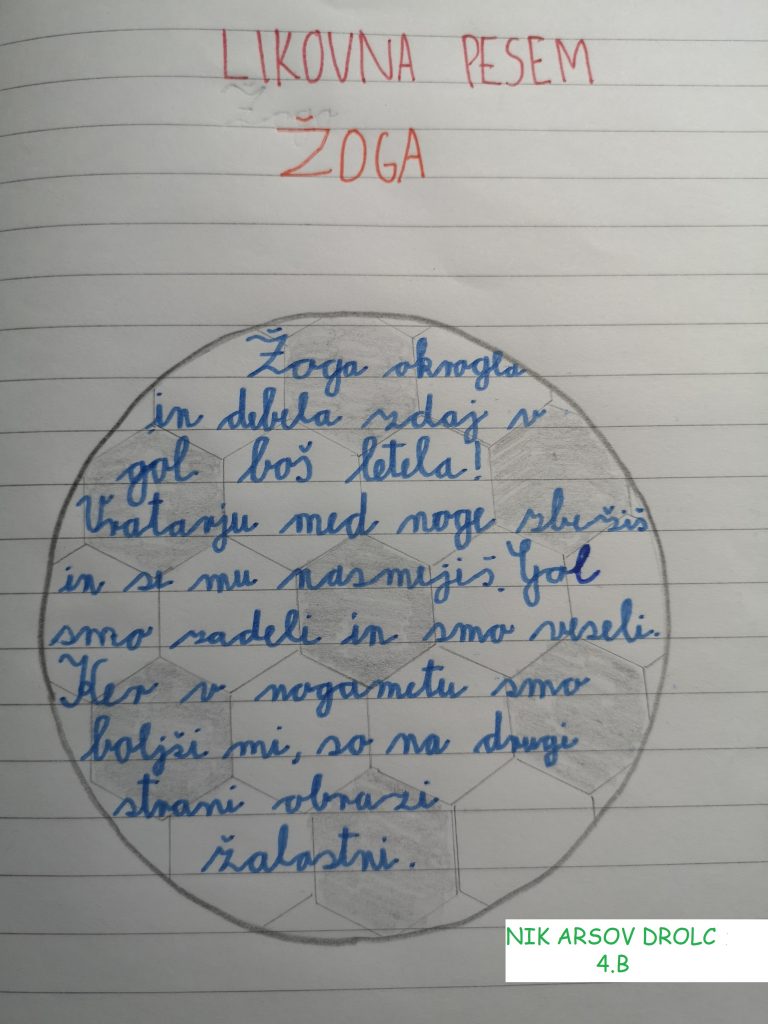 LIKOVNA PESEM
ŽOGA
Žoga okrogla
in debela zdaj v
gol boš letela!
Vratarju med noge zbežiš
in se mu nasmejiš. Gol
smo zadeli in smo veseli.
Ker v nogometu smo
boljši mi, so na drugi
strani obrazi
žalostni.
NIK ARSOV DROLC
4.B